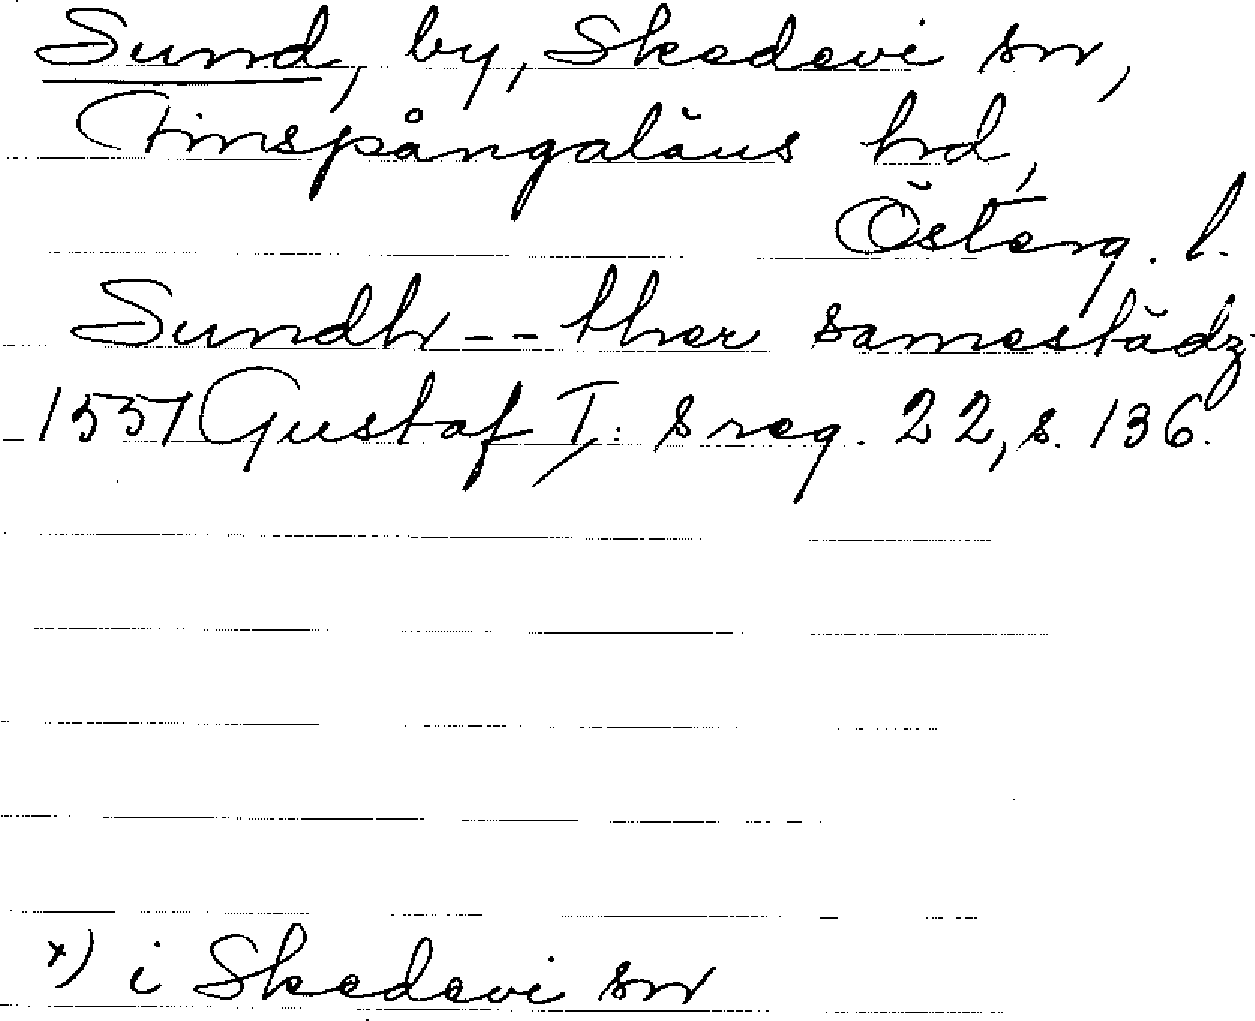 Sund, by, Skedevi sn,
Finspångaläns hd,
Österg. l.
Sundh -- ther samestädz
1551 Gustaf I: s reg. 22, s. 136.
x) i Skedevi sn